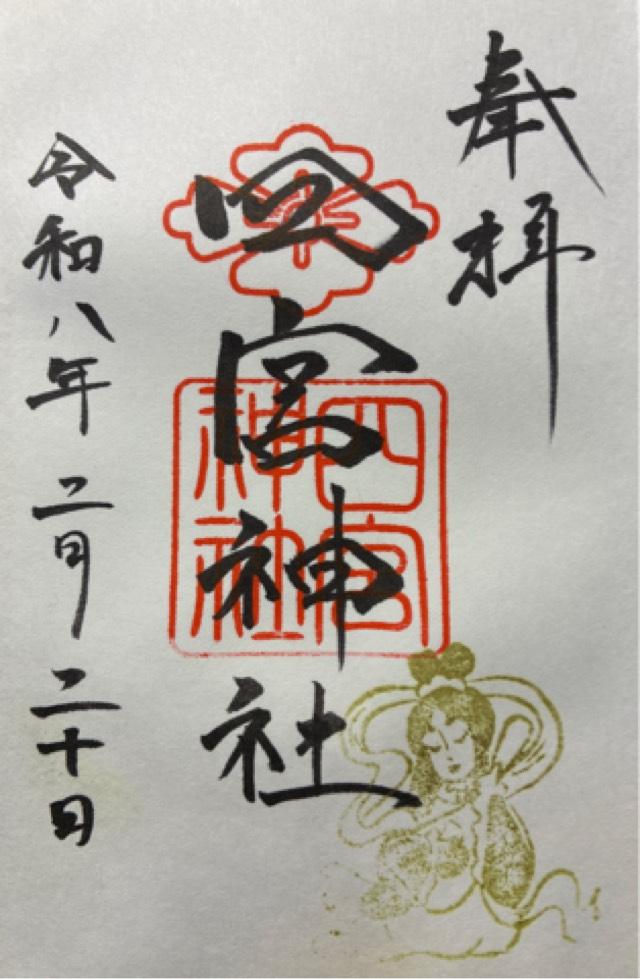 奉拝
四宮神社
四宮神社
令和八年二月二十日